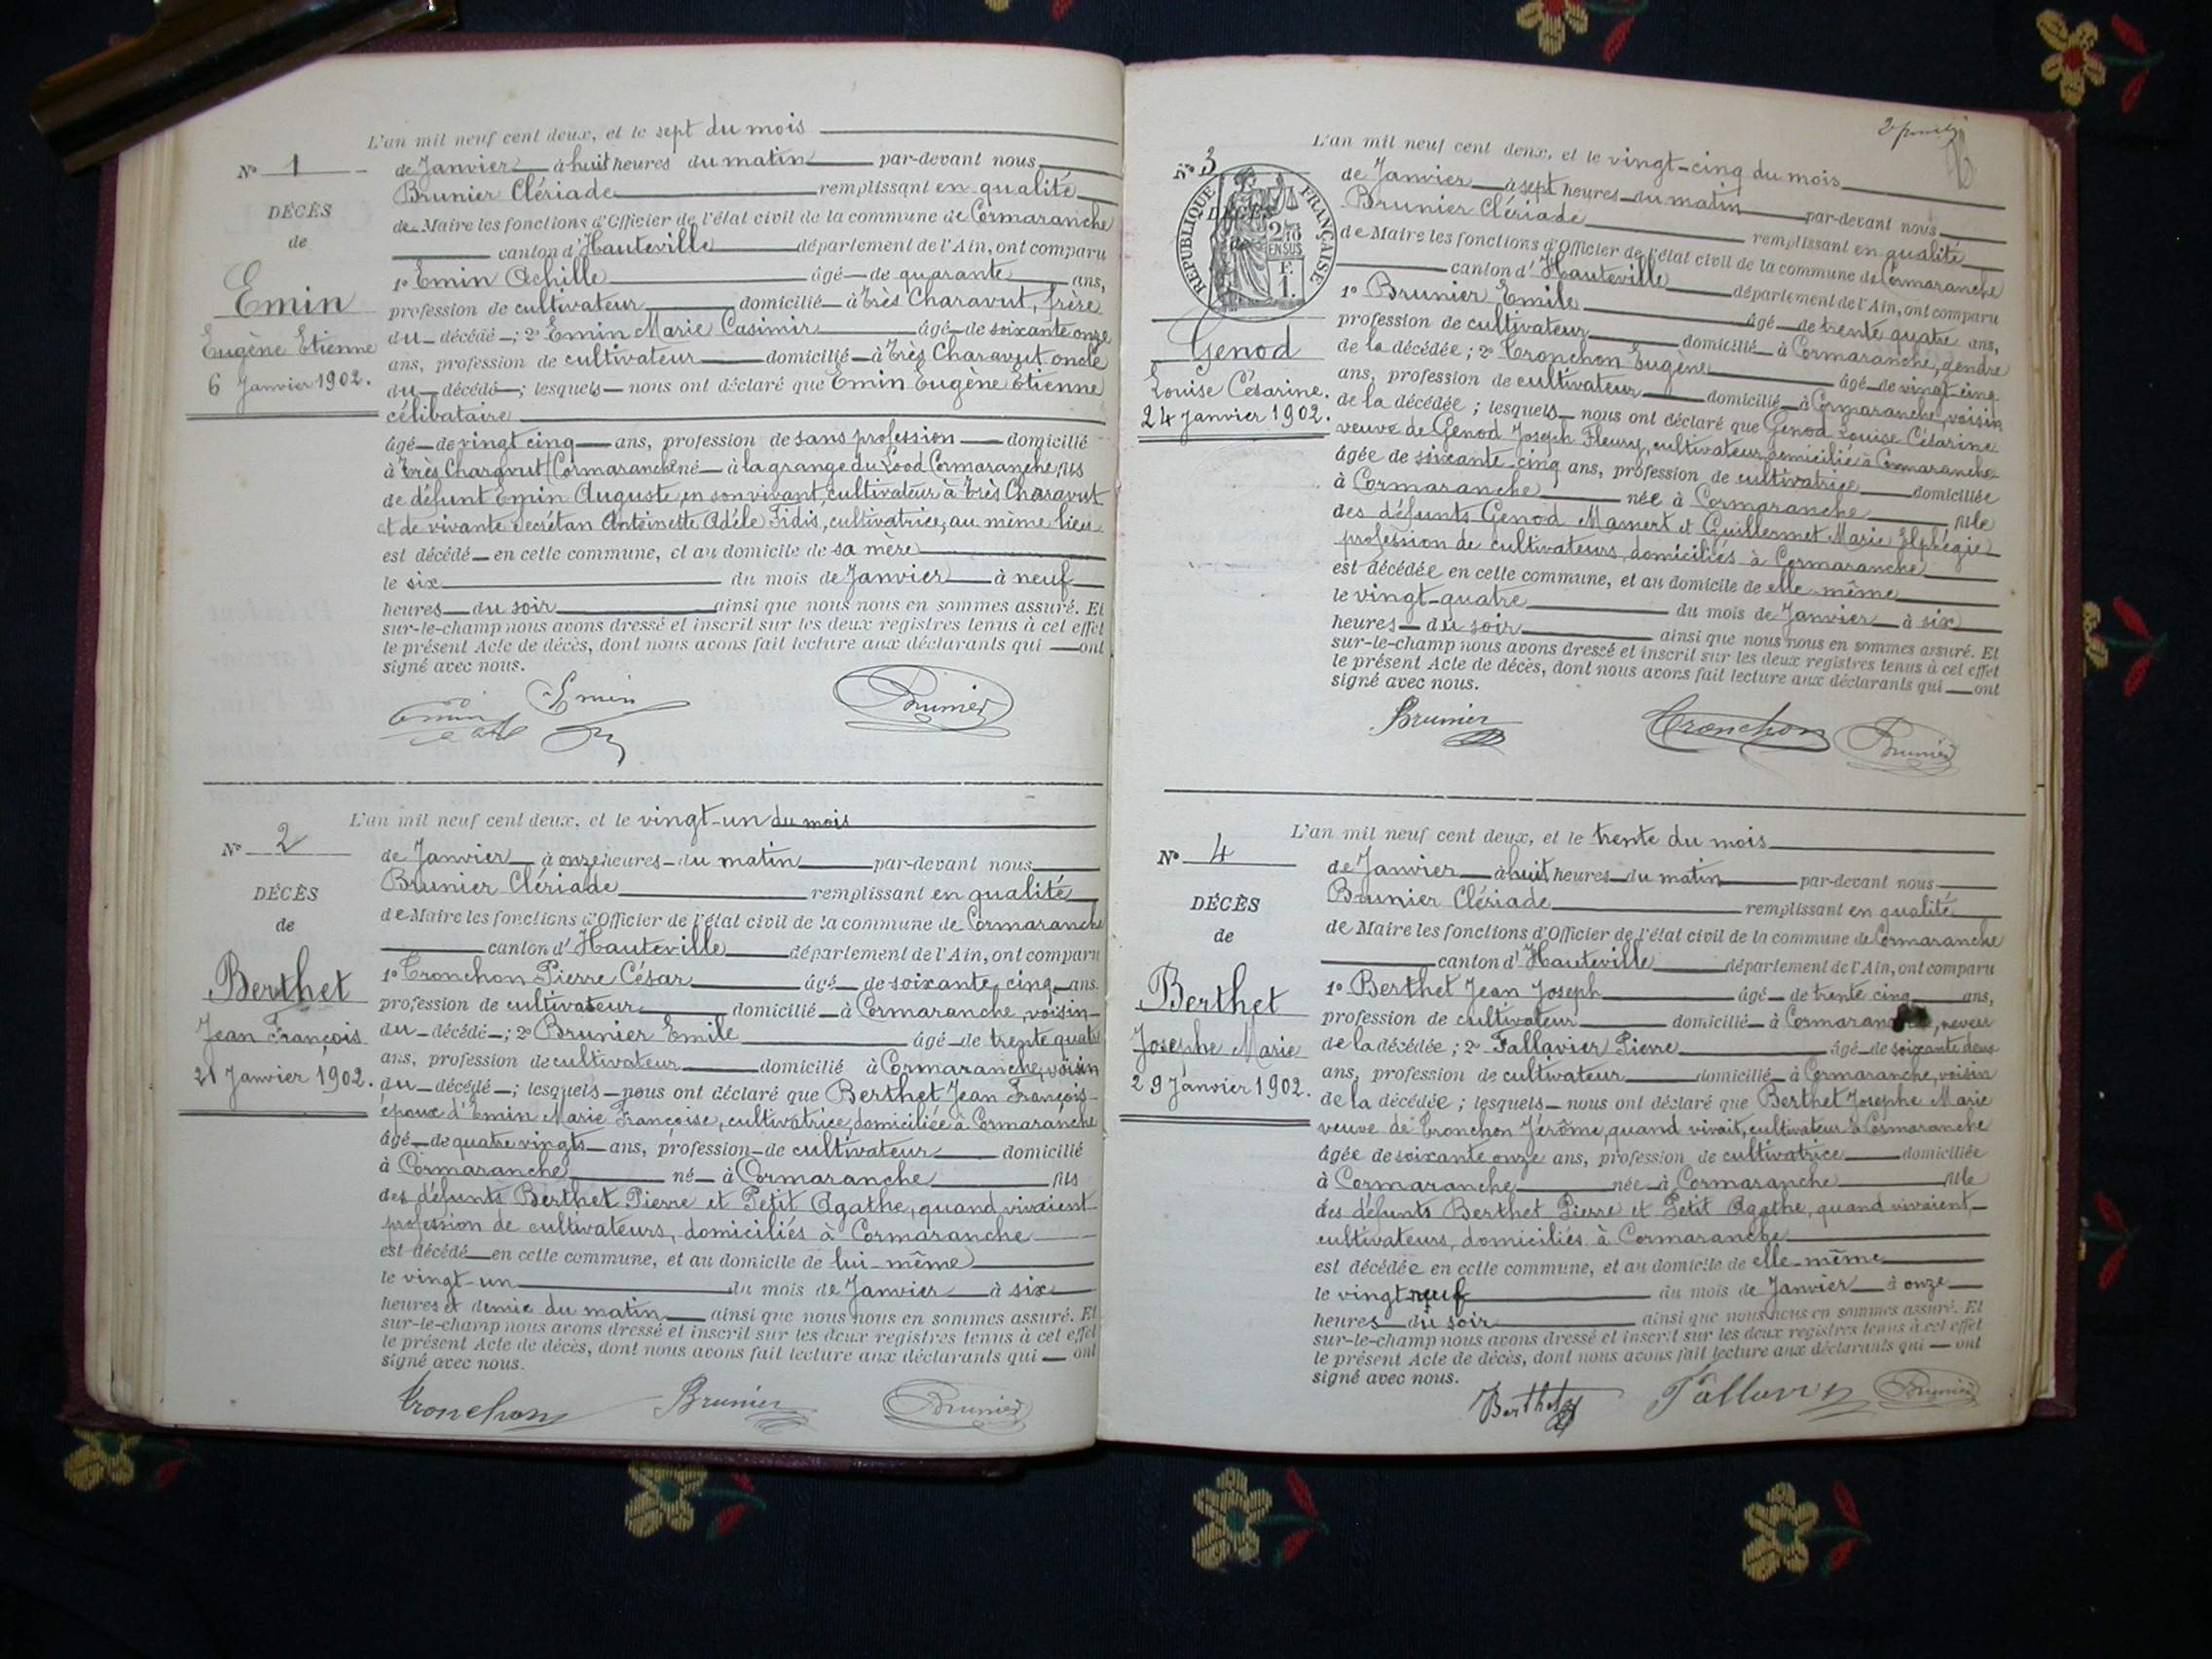 L'an mil neuf cent deux, et le sept du mois
N° 1
de Janvier à huit heures du matin par-devant nous
Brunier Clériade remplissant en qualité
DÉCÈS
de Maire les fonctions d'Officier de l'état civil de la commune de Cormaranche
de
canton d'Hauteville département de l'Ain, ont comparu
1° Emin Achille âgé de quarante ans,
Emin
profession de cultivateur domicilié à Très Charavut, frère
Eugène Etienne
du décédé ; 2° Emin Marie Casimir âgé de soixante onze
6 Janvier 1902.
ans, profession de cultivateur domicilié à Très Charavut oncle
du décédé ; lesquels nous ont déclaré que Emin Eugène Etienne
célibataire
âgé de vingt cinq ans, profession de sans profession domicilié
à Très Charavut (Cormaranche né à la grange du Lood Cormaranche fils
de défunt Emin Auguste, en son vivant, cultivateur à Très Charavut
et de vivante Secrétan Antoinette Adèle Fidis, cultivatrice, au même lieu
est décédé en cette commune, et au domicile de sa mère
le six du mois de Janvier à neuf
heures du soir ainsi que nous nous en sommes assuré. Et
sur-le-champ nous avons dressé et inscrit sur les deux registres tenus à cet effet
le présent Acte de décès, dont nous avons fait lecture aux déclarants qui ont
signé avec nous.
Emin Emin Brunier
L'an mil neuf cent deux, et le vingt-un du mois
N° 2
de Janvier à onze heures du matin par-devant nous
Brunier Clériade remplissant en qualité
DÉCÈS
de Maire les fonctions d'Officier de l'état civil de la commune de Cormaranche
de
canton d'Hauteville département de l'Ain, ont comparu
1° Tronchon Pierre César âgé de soixante cinq ans.
Berthet
profession de cultivateur domicilié à Cormaranche, voisin
Jean François
du décédé ; 2° Brunier Emile âgé de trente quatre
ans, profession de cultivateur domicilié à Cormaranche, voisin
21 Janvier 1902.
du décédé ; lesquels nous ont déclaré que Berthet Jean François
époux d'Emin Marie Françoise, cultivatrice, domiciliée à Cormaranche
âgé de quatre vingts ans, profession de cultivateur domicilié
à Cormaranche né à Cormaranche fils
des défunts Berthet Pierre et Petit Agathe, quand vivaient
profession de cultivateurs, domiciliés à Cormaranche
est décédé en cette commune, et au domicile de lui-même
le vingt-un du mois de Janvier à six
heures et demie du matin ainsi que nous nous en sommes assuré. Et
sur-le-champ nous avons dressé et inscrit sur les deux registres tenus à cet effet
le présent Acte de décès, dont nous avons fait lecture aux déclarants qui ont
signé avec nous.
Tronchon Brunier Brunier
L'an mil neuf cent deux, et le vingt-cinq du mois
N° 3
de Janvier à sept heures du matin par-devant nous
Brunier Clériade remplissant en qualité
RÉPUBLIQUE FRANÇAISE
DÉCÈS
2/10
EN SUS
F.
1.
de Maire les fonctions d'Officier de l'état civil de la commune de Cormaranche
canton d'Hauteville département de l'Ain, ont comparu
1° Brunier Emile âgé de trente quatre ans,
profession de cultivateur domicilié à Cormaranche, gendre
Genod
de la décédée ; 2° Tronchon Eugène âgé de vingt-cinq
Louise Césarine.
ans, profession de cultivateur domicilié à Cormaranche, voisin
24 Janvier 1902.
de la décédée ; lesquels nous ont déclaré que Genod Louise Césarine
veuve de Genod Joseph Fleury, cultivateur, domicilié à Cormaranche
âgée de soixante-cinq ans, profession de cultivatrice domiciliée
à Cormaranche née à Cormaranche fille
des défunts Genod Mamert et Guillermet Marie Elphégie
profession de cultivateurs, domiciliés à Cormaranche
est décédée en cette commune, et au domicile de elle-même
le vingt-quatre du mois de Janvier à six
heures du soir ainsi que nous nous en sommes assuré. Et
sur-le-champ nous avons dressé et inscrit sur les deux registres tenus à cet effet
le présent Acte de décès, dont nous avons fait lecture aux déclarants qui ont
signé avec nous.
Brunier Tronchon Brunier
L'an mil neuf cent deux, et le trente du mois
N° 4
de Janvier à huit heures du matin par-devant nous
Brunier Clériade remplissant en qualité
DÉCÈS
de Maire les fonctions d'Officier de l'état civil de la commune de Cormaranche
de
canton d'Hauteville département de l'Ain, ont comparu
1° Berthet Jean Joseph âgé de trente cinq ans,
Berthet
profession de cultivateur domicilié à Cormaranche, neveu
Josephe Marie
de la décédée ; 2° Fallavier Pierre âgé de soixante deux
29 Janvier 1902.
ans, profession de cultivateur domicilié à Cormaranche, voisin
de la décédée ; lesquels nous ont déclaré que Berthet Josephe Marie
veuve de Tronchon Jérôme, quand vivait, cultivateur à Cormaranche
âgée de soixante onze ans, profession de cultivatrice domiciliée
à Cormaranche née à Cormaranche fille
des défunts Berthet Pierre et Petit Agathe, quand vivaient,
cultivateurs, domiciliés à Cormaranche
est décédée en cette commune, et au domicile de elle-même
le vingt neuf du mois de Janvier à onze
heures du soir ainsi que nous nous en sommes assuré. Et
sur-le-champ nous avons dressé et inscrit sur les deux registres tenus à cet effet
le présent Acte de décès, dont nous avons fait lecture aux déclarants qui ont
signé avec nous.
Berthet Fallavier Brunier